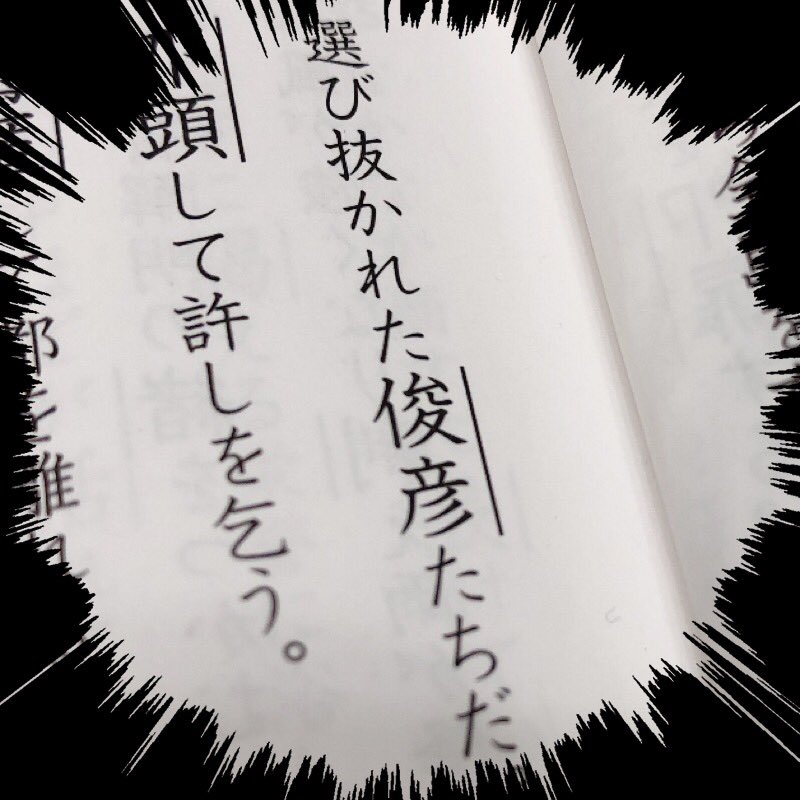 選び抜かれた俊彦たちだ
頭して許しを乞う。
都を離れ